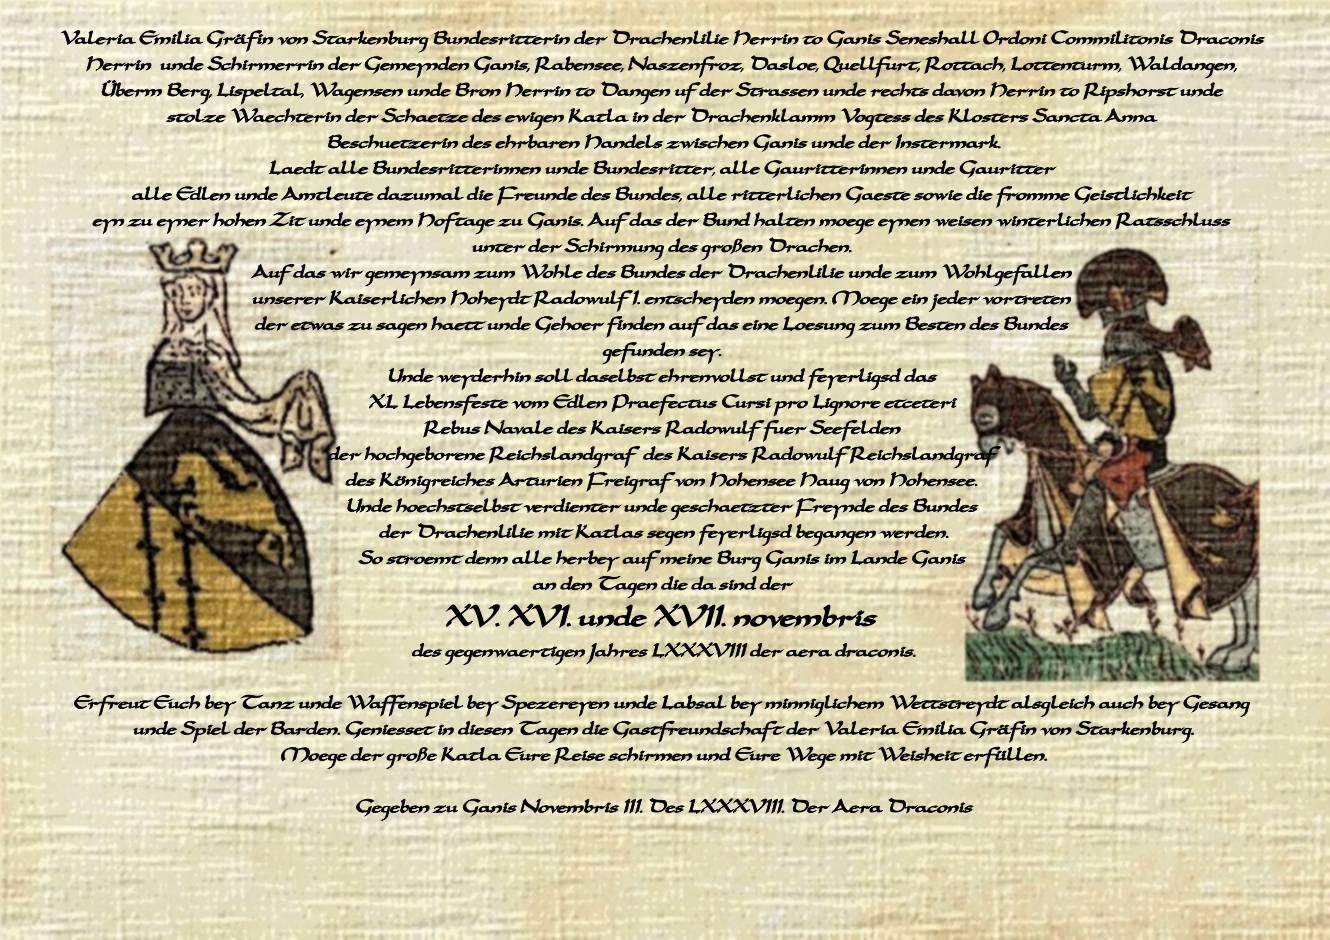 Valeria Emilia Gräfin von Starkenburg Bundesritterin der Drachenlilie Herrin to Ganis Seneshall Ordoni Commilitonis Draconis
Herrin unde Schirmerrin der Gemeynden Ganis, Rabensee, Naszenfroz, Dasloe, Quellfurt, Rottach, Lottenturm, Waldangen,
Überm Berg, Lispeltal, Wagensen unde Bron Herrin to Dangen uf der Strassen unde rechts davon Herrin to Ripshorst unde
stolze Waechterin der Schaetze des ewigen Katla in der Drachenklamm Vogtess des Klosters Sancta Anna
Beschuetzerin des ehrbaren Handels zwischen Ganis unde der Instermark.
Laedt alle Bundesritterinnen unde Bundesritter, alle Gauritterinnen unde Gauritter
alle Edlen unde Amtleute dazumal die Freunde des Bundes, alle ritterlichen Gaeste sowie die fromme Geistlichkeit
eyn zu eyner hohen Zit unde eynem Hoftage zu Ganis. Auf das der Bund halten moege eynen weisen winterlichen Ratsschluss
unter der Schirmung des großen Drachen.
Auf das wir gemeynsam zum Wohle des Bundes der Drachenlilie unde zum Wohlgefallen
unserer Kaiserlichen Hoheydt Radowulf I. entscheyden moegen. Moege ein jeder vortreten
der etwas zu sagen haett unde Gehoer finden auf das eine Loesung zum Besten des Bundes
gefunden sey.
Unde weyderhin soll daselbst ehrenvollst und feyerligsd das
XL Lebensfeste vom Edlen Praefectus Cursi pro Lignore etceteri
Rebus Navale des Kaisers Radowulf fuer Seefelden
der hochgeborene Reichslandgraf des Kaisers Radowulf Reichslandgraf
des Königreiches Arturien Freigraf von Hohensee Haug von Hohensee.
Unde hoechstselbst verdienter unde geschaetzter Freynde des Bundes
der Drachenlilie mit Katlas segen feyerligsd begangen werden.
So stroemt denn alle herbey auf meine Burg Ganis im Lande Ganis
an den Tagen die da sind der
XV. XVI. unde XVII. novembris
des gegenwaertigen Jahres LXXXVIII der aera draconis.
Erfreut Euch bey Tanz unde Waffenspiel bey Spezereyen unde Labsal bey minniglichem Wettstreydt alsgleich auch bey Gesang
unde Spiel der Barden. Geniesset in diesen Tagen die Gastfreundschaft der Valeria Emilia Gräfin von Starkenburg.
Moege der große Katla Eure Reise schirmen und Eure Wege mit Weisheit erfüllen.
Gegeben zu Ganis Novembris III. Des LXXXVIII. Der Aera Draconis